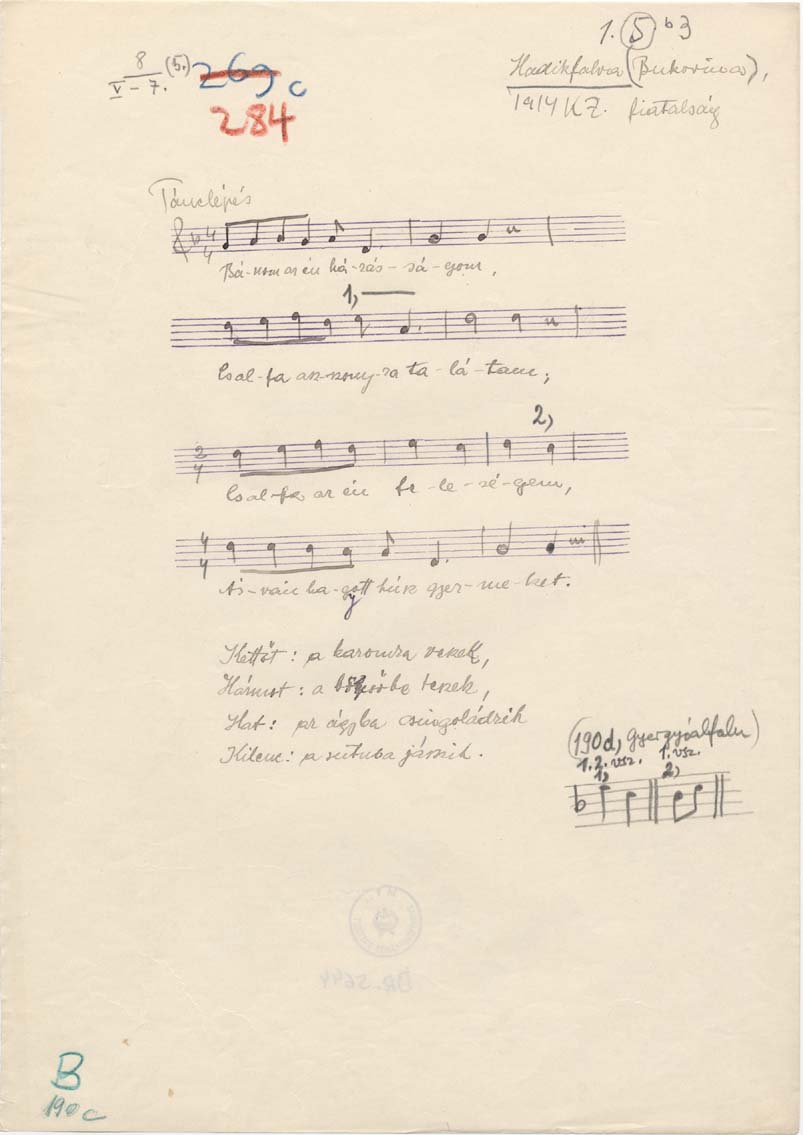 1. 5 b 3
8 (5.)
V – 7.
269 c
284
Hadikfalva (Bukovina),
1914 K Z. fiatalság
Tánclépés
4
4
Bá-nom az én há-zas-sá-gom,
1,
Csal-fa asz-szony-ra ta-lá-tam;
2
4
2,
Csal-fa az én fe-le-sé-gem,
4
4
Ás-ván ha-gyott húsz gyer-me-ket.
Kettőt: a karomra veszek,
Hármot: a bőcsőbe teszek,
Hat: az ágyba csingoládzik
Kilenc: a sutuba jászik.
(190d, Gyergyóalfalu)
1. 2. vsz. 1. vsz.
1, 2,
B
190 c